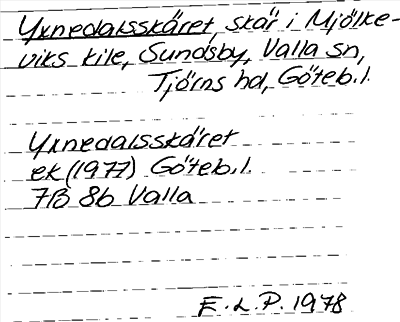 Yxnedalsskäret, skär i Mjölke-
viks kile, Sundsby, Valla sn,
Tjörns hd, Göteb.l.
Yxnedalsskäret
ek (1977) Göteb.l.
7B 8b Valla
F.L.P. 1978